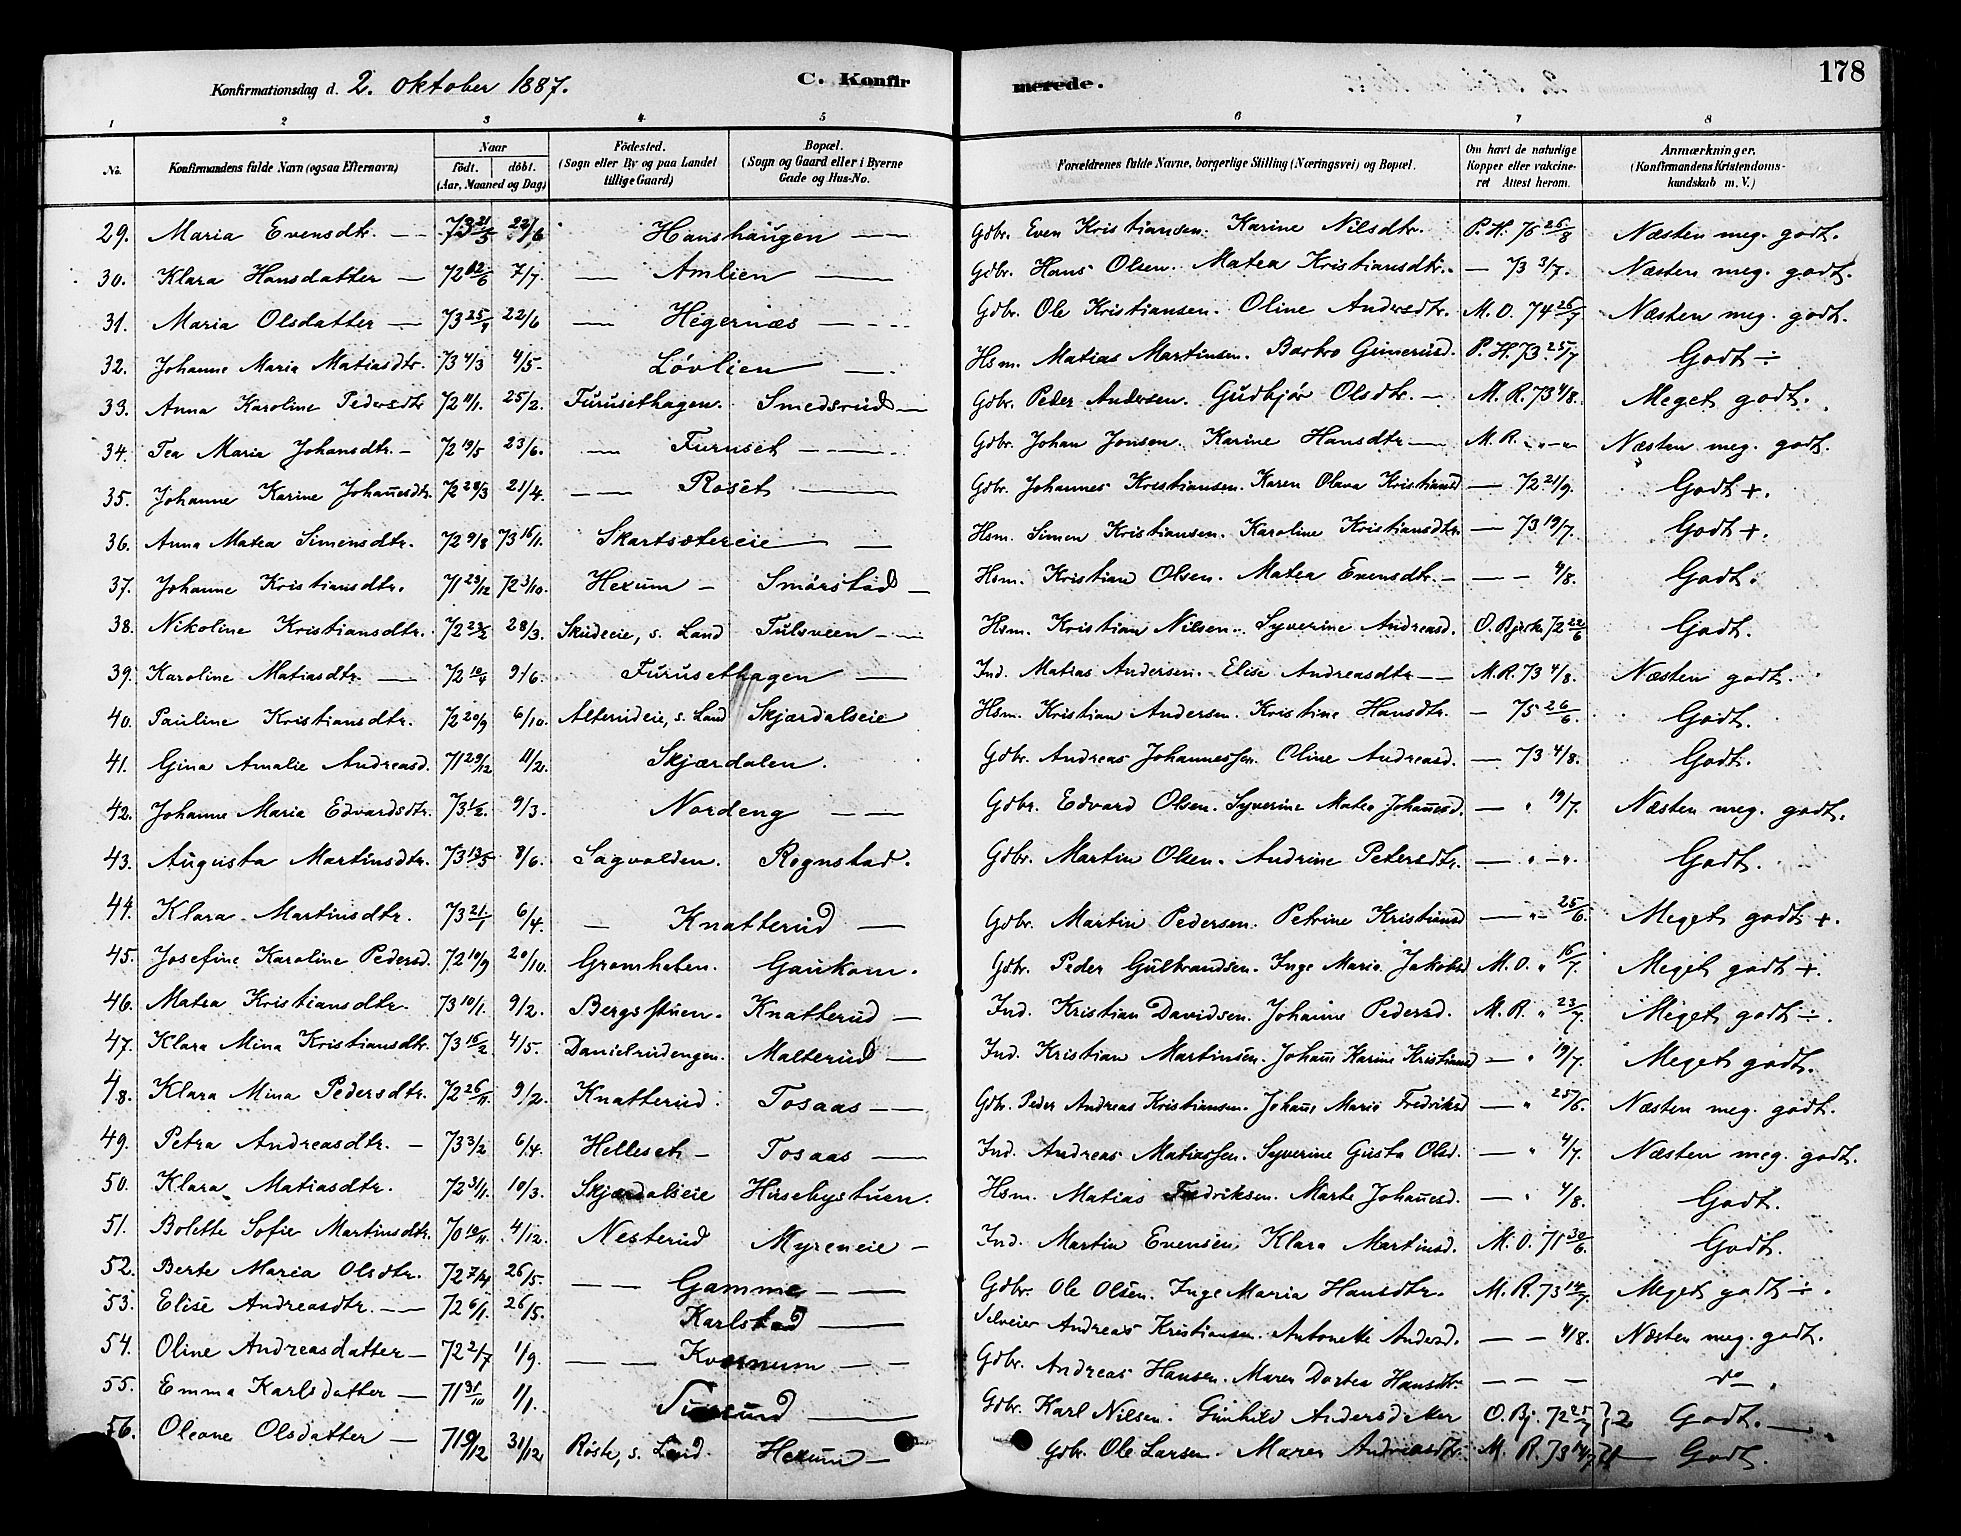 Konfirmationsdag d. 2. oktober 1887. C. Konfirmerede. 178
1 2 3 4 5 6 7 8
No. Konfirmandens fulde Navn (ogsaa Efternavn) Naar Födt. döbt. (Aar, Maaned og Dag) Födested. (Sogn eller By og paa Landet tillige Gaard) Bopæl. (Sogn og Gaard eller i Byerne Gade og Hus-No. Forældrenes fulde Navne, borgerlige Stilling (Næringsvei) og Bopæl. Om havt de naturlige Kopper eller vakcineret Attest herom. Anmærkninger. (Konfirmandens Kristendomskundskab m. V.)
29. Maria Evensdtr. — 73 21/5 22/6 Hanshaugen — Gdbr. Even Kristiansen. Karine Nilsdtr. P. H. 76 26/8 Næsten meg. godt.
30. Klara Hansdatter — 72 12/6 7/7. — Amlien — Gdbr. Hans Olsen. Matea Kristiansdtr. — 73 3/7. Næsten meg. godt.
31. Maria Olsdatter — 73 25/4 22/6 — Hegernæs — Gdbr. Ole Kristiansen. Oline Andersdtr. M. O. 74 26/7 Næsten meg. godt.
32. Johanne Maria Matiasdtr. 73 4/3 4/5. Lövlien — Hsm. Matias Martinsen. Barbro P. H. 73 25/7 Godt ÷
33. Anna Karoline Pedersdtr 72 11/1. 25/2. Furusethagen. Smedsrud — Gdbr. Peder Andersen. Gudbjör Olsdtr. — M. R. 73 4/8. Meget godt.
34. Tea Maria Johansdtr. — 72 19/5 23/6. — Furuset — Gdbr. Johan Jonsen. Karine Hansdtr — M. R. „ — „ Næsten meg. godt.
35. Johanne Karine Johañesdtr. 72 28/3 21/4. — — Roset — Gdbr. Johannes Kristiansen. Karen Olava Kristiansd — 72 21/9. Godt +.
36. Anna Matea Simensdtr. 72 9/8 73 16/1. Skartsætereie — Hsm. Simen Kristiansen. Karoline Kristiansdtr. — 73 19/7. Godt +.
37. Johanne Kristiansdtr. 71 23/12 72 3/10. Hexum — Smörstad — Hsm. Kristian Olsen. Matea Evensdtr. — — — 4/8. Godt.
38. Nikoline Kristiansdtr. 72 23/2 28/3. Skudeie, s. Land Tulsveen — Hsm. Kristian Nilsen. Syverine Andreasd. O. Bjerk. 72 22/6 Godt.
39. Karoline Matiasdtr — 72 10/4 9/6. Furusethagen — Ind. Matias Andersen. Elise Andreasdtr — M. R. 73 4/8. Næsten godt.
40. Pauline Kristiansdtr. 72 20/9 6/10. Alterudeie, s. Land Skjærdalseie Hsm. Kristian Andersen. Kristine Hansdtr. — 75 26/6. Godt.
41. Gina Amalie Andreasd. 71 29/12 11/2. Skjærdalen. Gdbr. Andreas Johannessen. Oline Andreasd. — 73 4/8. Godt.
42. Johanne Maria Edvardsdtr. 73 1/2. 9/3. Nordeng — — Gdbr. Edvard Olsen. Syverine Matea Johañesd. — „ 19/7. Næsten meg. godt.
43. Augusta Martinsdtr. 73 13/5 8/6. Sagvolden. Rognstad. Gdbr. Martin Olsen. Andrine Pedersdtr. — „ — „. Godt.
44. Klara Martinsdtr. 73 21/1 6/4. — Knatterud — Gdbr. Martin Pedersen. Petrine Kristiansd — „ 25/6. Meget godt +.
45. Josefine Karoline Pedersd. 72 10/9 20/10. Gromheten. Gaukom. Gdbr. Peder Gulbrandsen. Inge Marie Jakobsd. M. O. „ 16/7. Meget godt +.
46. Matea Kristiansdtr. 73 10/1. 9/2. Bergsstuen. Knatterud — Ind. Kristian Davidsen. Johañe Pedersd. M. R. „ 23/7. Meget godt ÷.
47. Klara Mina Kristiansdtr. 73 16/2 4/5. Danielrudengen. Malterud — Ind. Kristian Martinsen. Johañe Karine Kristiansd — „ 19/7. Meget godt.
48. Klara Mina Pedersdtr. 72 26/11 9/2. Knatterud. Tosaas — Gdbr. Peder Andreas Kristiansen. Johañe Marie Fredriksd — „ 25/6. Næsten meg. godt.
49. Petra Andreasdtr. — 73 3/2 6/4. Helleset — Tosaas — Ind. Andreas Matiassen. Syverine Gusta Olsd. — „ 4/7. Næsten meg. godt.
50. Klara Matiasdtr. 72 31/1. 10/3. Skjærdalseie Hesebystuen. Hsm. Matias Fredriksen. Marte Johañesd. — „ 4/8. Godt.
51. Bolette Sofie Martinsdtr. 70 10/11. 4/12. Nesterud Myreneie — Ind. Martin Evensen. Klara Martinsd. M. O. 71 30/6. Godt.
52. Berte Maria Olsdtr. 72 7/4 26/5. — — Gamme — — Gdbr. Ole Olsen. Inge Maria Hansdtr. M. R. 73 14/7. Meget godt ÷.
53. Elise Andreasdtr. — 72 6/1. 26/5. Karlstad — Selveier Andreas Kristiansen. Antonette Andersd. — — 4/8. Næsten meg. godt.
54. Oline Andreasdatter — 72 2/7 1/9. — — Kvernum — — Gdbr. Andreas Hansen. Maren Dortea Hansdtr — — — do.
55. Emma Karlsdatter — 71 31/10 1/1. — Gdbr. Karl Nilsen. Gunhild Andersdatter O. Bj. 72 25/7 }2 Godt. —
56. Oleane Olsdatter — 71 9/12 31/12 Röste, s. Land. Hexum — Gdbr. Ole Larsen. Maren Andreasdtr. M. R. 73 14/7 }1 Godt.